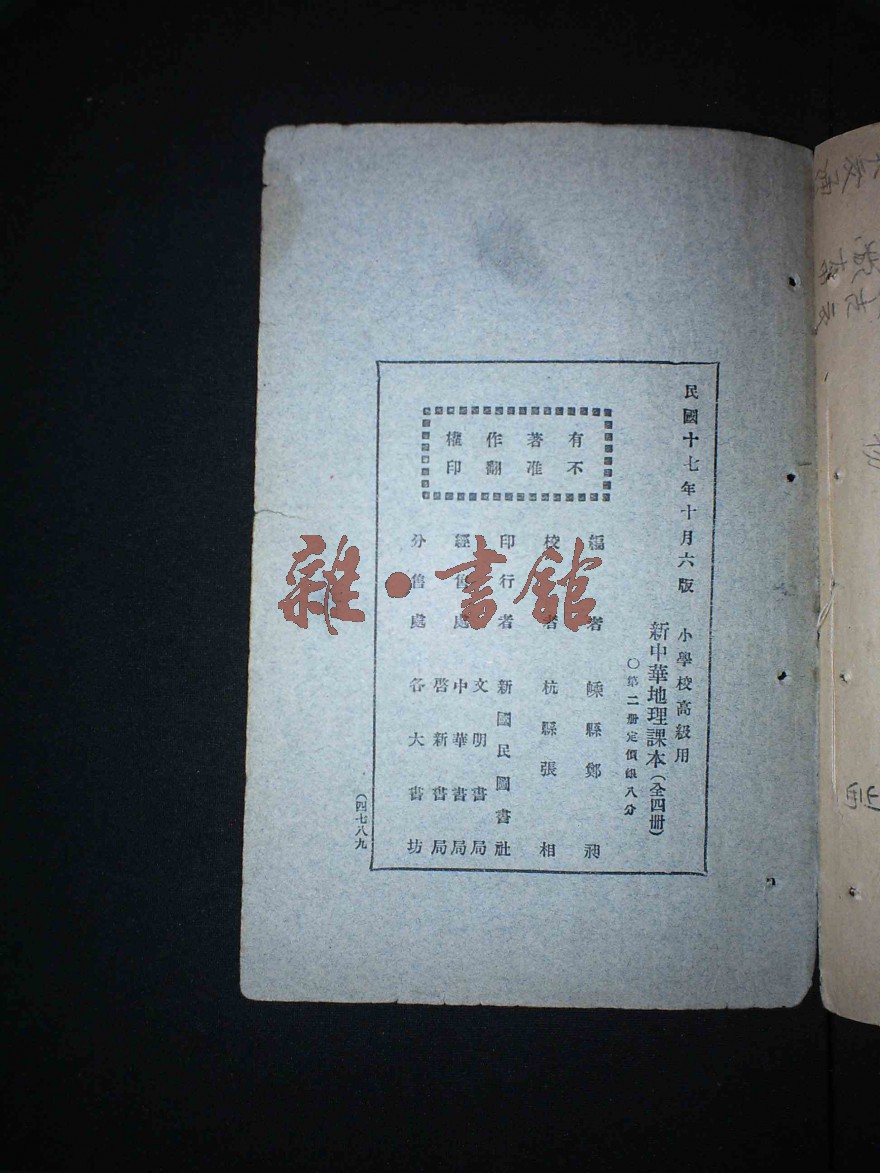 民國十七年十月六版
小學校高級用
新中華地理課本(全四册)
○第二册定價銀八分
有著作權
不准翻印
編 者 嵊縣鄭昶
校 者 杭縣張相
印行者 新國民圖書社
經售處 文明書局
中華書局
啓新書局
分售處 各大書坊
(四七八九
雜·書館